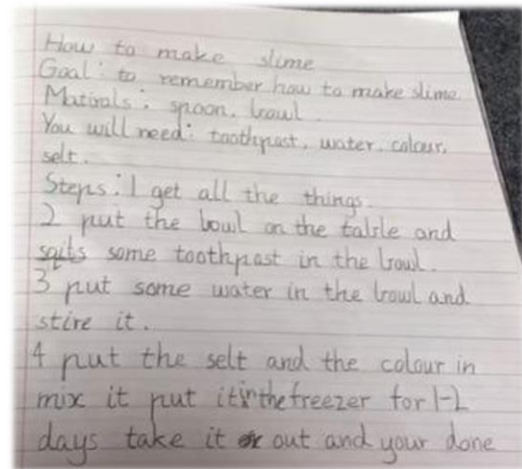 How to make slime
Goal: to remember how to make slime.
Matirals: spoon, bowl.
You will need: toothpast, water, colour,
selt.
Steps: 1 get all the things.
2 put the bowl on the table and
sqits some toothpast in the bowl.
3 put some water in the bowl and
stire it.
4 put the selt and the colour in
mix it put it in the freezer for 1-2
days take it out and your done